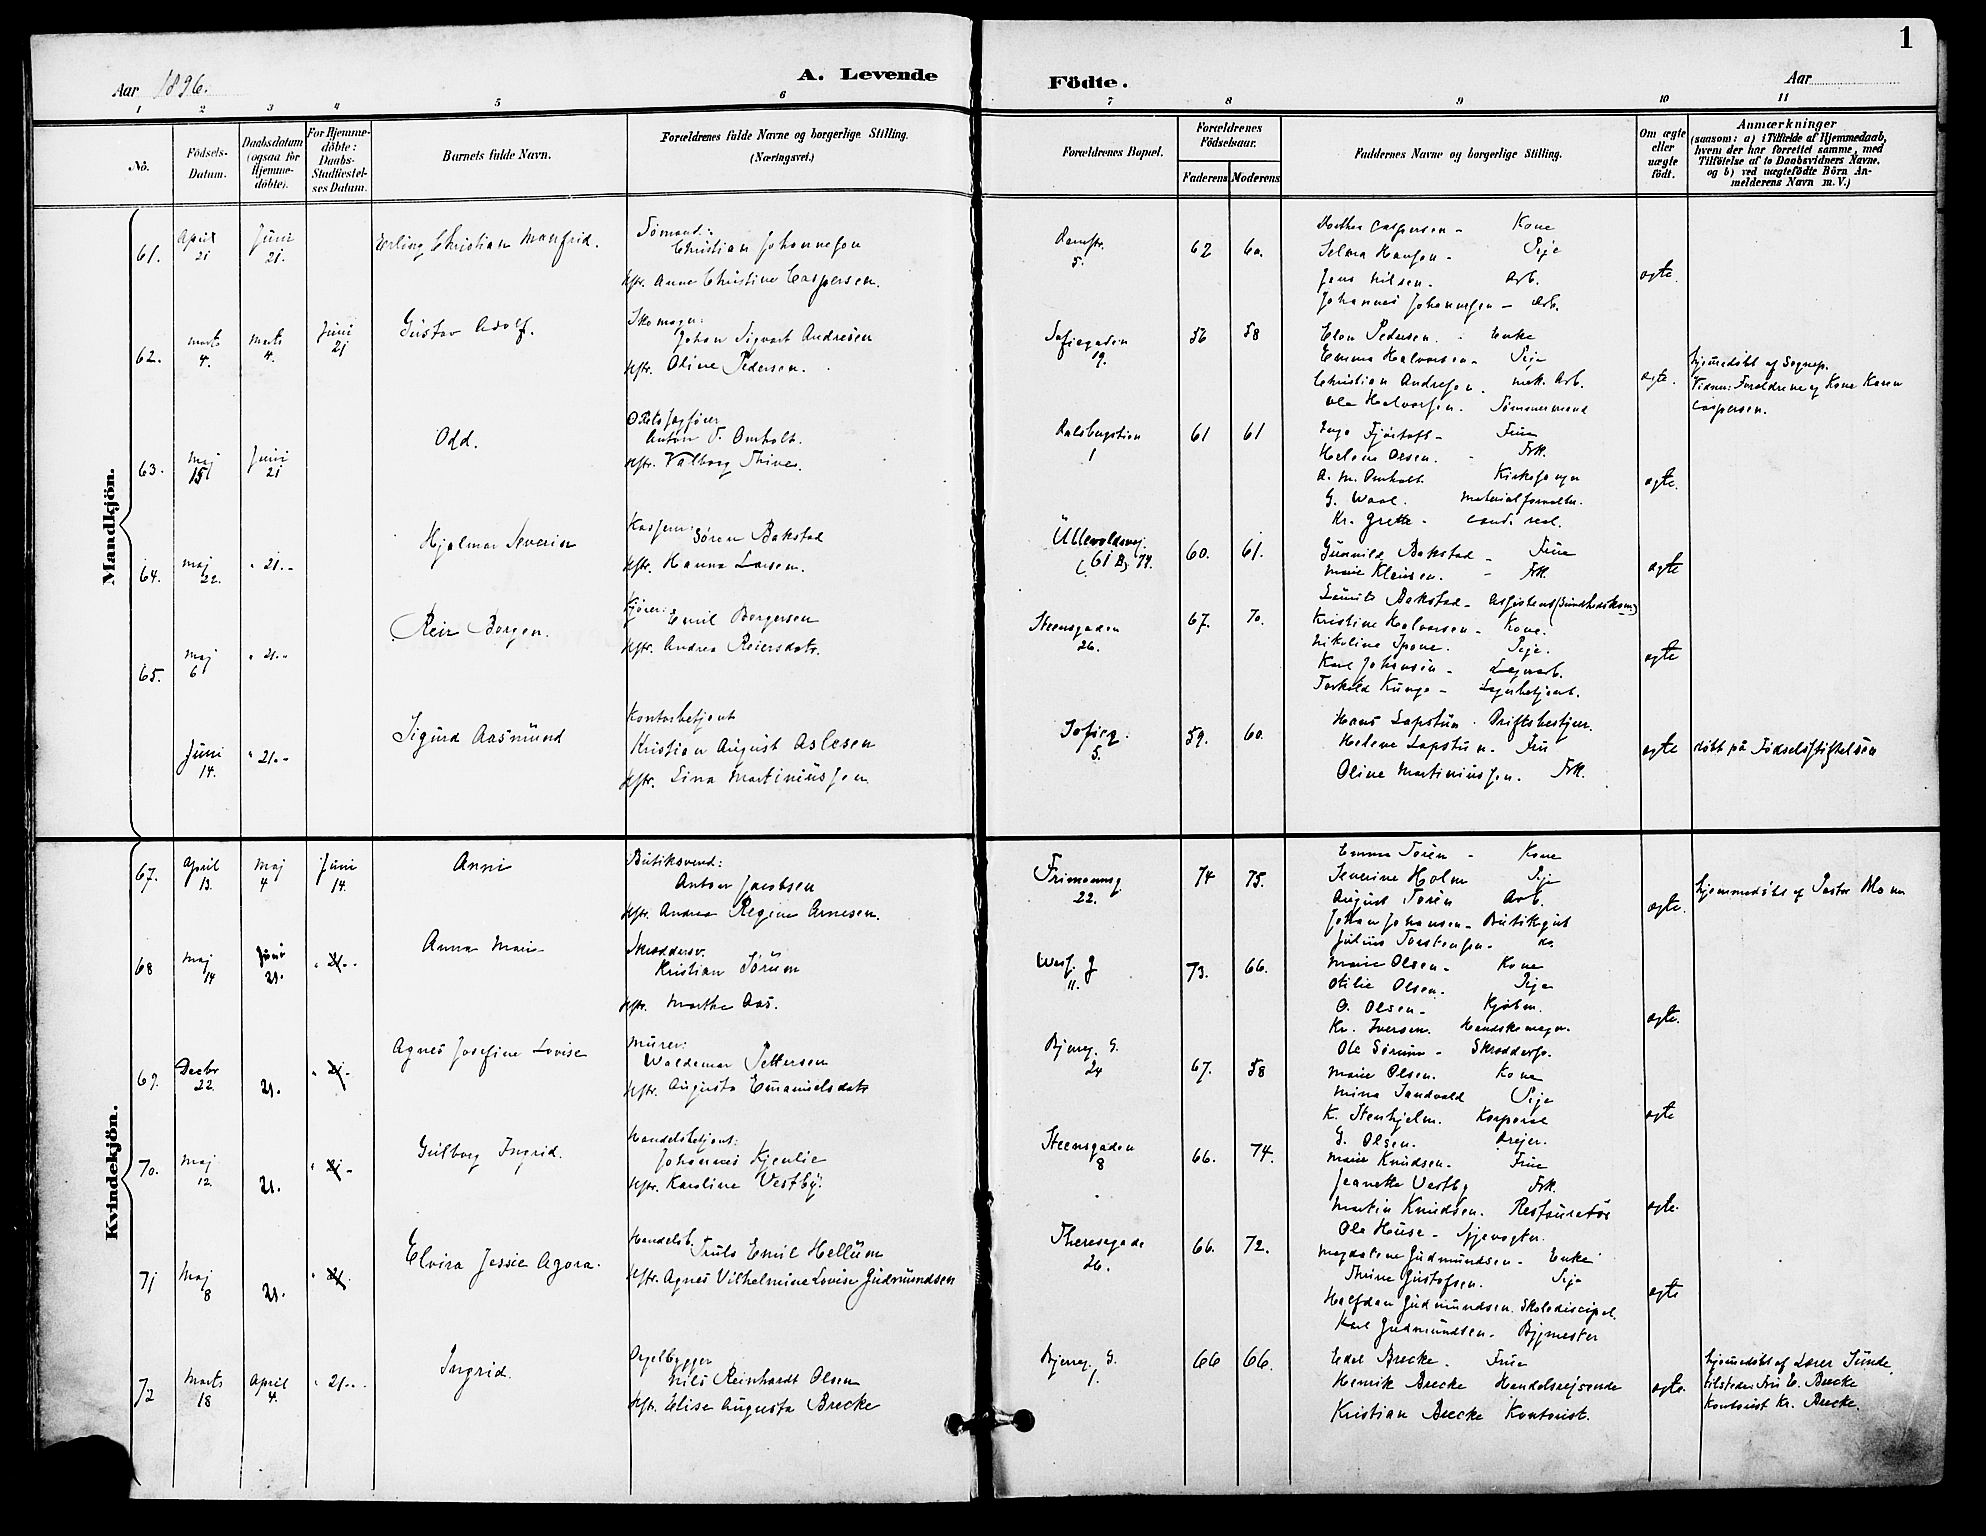 1
Aar 1896.
A. Levende
Födte.
Aar
1 2 3 4 5 6 7 8 9 10 11
No.
Födsels-
Datum.
Daabsdatum
(ogsaa for
Hjemme-
döbte).
For Hjemme-
döbte:
Daabs-
Stadfæstel-
ses Datum.
Barnets fulde Navn.
Forældrenes fulde Navne og borgerlige Stilling.
(Næringsvei.)
Forældrenes Bopæl.
Forældrenes
Födselsaar.
Faderens
Moderens
Faddernes Navne og borgerlige Stilling.
Om ægte
eller
uægte
födt.
Anmærkninger
(saasom: a) i Tilfælde af Hjemmedaab,
hvem der har forrettet samme, med
Tilföielse af to Daabsvidners Navne,
og b) ved uægtefödte Börn An-
melderens Navn m. V.)
Mandkjön.
61. April 21 Juni 21. Erling Christian Manfrid.
Sømand:
Christian Johannesen
Hstr. Anne Christine Caspersen.
5. 62 60.
Caspersen - Kone
Selma Hansen - Pige
Jens Nilsen. Arb.
Johannes Johannesen - Arb.
ægte
62. Marts 4. Marts 4. Juni 21 Gustav Adolf.
Skomager:
Johan Sigvart Andresen
Hstr. Oline Pedersen.
Sofiegaden
19. 56 58
Pedersen. Enke
Emma Halvorsen - Pige
Christian Andresen. mek. Arb.
Ole Halvorsen. Tømmermand
ægte.
hjemedøbt af Sognep.
Vidner: Forældrene og Kone Karen
Caspersen.
63. Maj 15 Juni 21 Odd.
Anton T. Omholt.
Hstr. Valborg
Dalsbergstien
1 61 61
Fjørtoft - Frue
Helene Olsen. - Frk.
A. M. Omholt Kirkesanger
G. Waal. Materialforvalter.
Kr. Grette - cand. real.
ægte.
64. Maj 22. " 21. - Hjalmar Severin
Søren Bakstad
Hstr. Hanna Larsen.
Ullevoldsvej
60. 61.
Gunvild Bakstad - Frue
Marie Klausen. - Frk.
Laurits Bakstad - Assistent (Sundhedskom)
ægte
65. Maj 6 " 21. - Reier Borgen.
Kjører:
Emil Borgersen
Hstr. Andrea Reiersdatr.
Steensgaden
26. 67. 70.
Kristine Halvorsen - Kone.
Nikoline Pige.
Karl Johansen - Lagerarb.
Torkild - Lagerbetjent.
ægte
Juni 14. " 21. - Sigurd Aasmund
Kontorbetjent
Kristian August Aslesen
Hstr. Lina Martiniussen
Sofieg.
5. 59. 60.
Hans Lapstun. Driftsbestjrer.
Helene Lapstun. Fru
Oline Martiniussen. Frk.
ægte
døbt på Fødselsstiftelsen
Kvindekjön.
67. April 13. Maj 4 Juni 14. Anni
Butiksvend:
Anton Jacobsen
Hstr. Andrea Regine Arnesen.
Frimannsg
22. 74 75.
Emma Toren - Kone
Severine Holm Pige
August Toren Arb.
Johan Johansen - Butikgut
Julius Torstensen - do
ægte.
hjemmedøbt af Pastor
68 Maj 14 Juni 21. " 21. - Anna Marie
Skræddersv.
Kristian Sørum
Hstr. Marthe Aas.
11. 73. 66.
Marie Olsen - Kone
Otilie Olsen. Pige
O. Olsen - Kjøbm.
Kr. Iversen. Handskemager.
Ole Sørum - Skræddersv.
ægte.
69. Decbr 22. 21. " 21. - Agnes Josefine Lovise
Murer:
Waldemar Pettersen
Hstr. Augusta Emanuelsdatr
Bjerreg. G.
24 67. 58
Marie Olsen. Kone
Mina Sandvold Pige
K. Stenhjelm. Korporal
G. Olsen. Drejer.
ægte
70. Maj 12. 21. " 21 - Gulborg Ingrid.
Handelsbetjent:
Johannes Kjenlie
Hstr. Karoline Vestby.
Steensgaden
8 66. 74.
Marie Knudsen. Frue
Jeanette Vestby Frk.
Martin Knudsen. Restauratør
Ole Huse -
ægte.
71 Maj 8 21. " 21. Elvira Jessie Agora.
Handelsb.
Truls Emil Hellum
Hstr. Agnes Vilhelmine Lovise Gudmundsen
Theresegade
26. 66. 72.
Magdalene Gudmundsen - Enke
Thrine Gustafsen. Pige
Halfdan Gudmundsen. Skolediscipel.
Karl Gudmundsen - Bygmester
ægte
72 Marts 18 April 4. " 21. - Ingrid.
Orgelbygger
Nils Reinhardt Olsen
Hstr. Elise Augusta Brecke
Bjerreg. G.
1. 66 66.
Edel Brecke. Frue
Henrik Brecke Handelsrejsende
Kristian Brecke Kontorist.
ægte.
hjemedøbt af Lærer Sunde
tilstede: Fru E. Brecke
Kontorist Kr. Brecke.